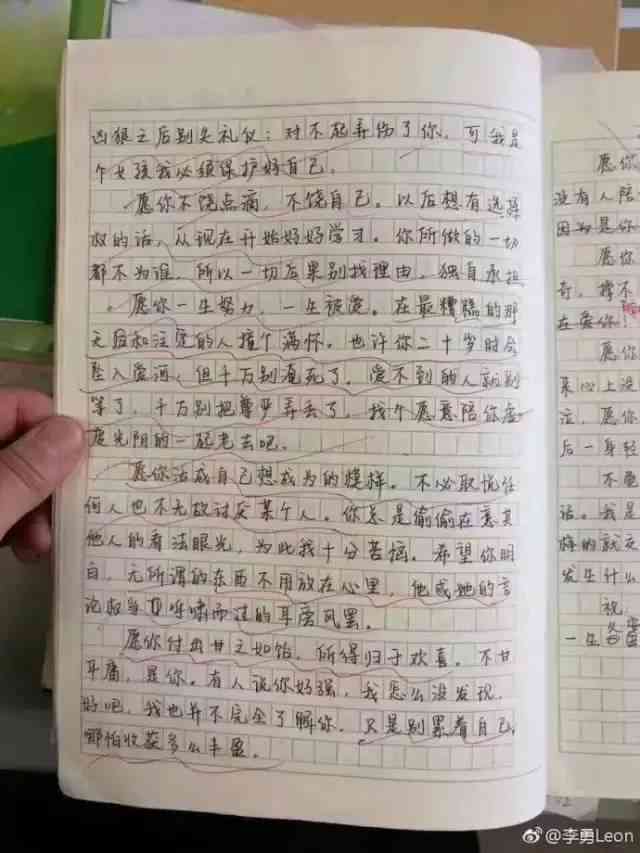 凶狠之后别失礼仪：对不起弄伤了你，可我是
个女孩我必须保护好自己。
愿你不饶点病，不饶自己。以后想有选择
权的话，从现在开始好好学习。你所做的一切
都不为谁，所以一切后果别找理由，独自承担。
愿你一生努力，一生被爱。在最糟糕的那
天后和注定的人撞个满怀。也许你二十岁时会
坠入爱河，但千万别淹死了。爱不到的人就别
等了，千万别把尊严弄丢了，找个愿意陪你虚
度光阴的一起老去吧。
愿你活成自己想成为的模样。不必取悦任
何人也不无故讨厌某个人。你总是偷偷在意其
他人的看法眼光，为此我十分苦恼。希望你明
白，无所谓的东西不用放在心里，他或她的言
论权当呼啸而过的耳旁风罢。
愿你付出甘之如饴，所得归于欢喜。不甘
平庸，是你。有人说你好强，我怎么没发现，
好吧，我也并不完全了解你。只是别累着自己，
哪怕收获多么丰盈。
愿你
没有人陪
因为是你
愿你
奇，撑不
在爱你！
愿你
来心上没
泣，愿你
后一身轻
不
话。我是
悔的就交
发生什么
祝
一生
@李勇Leon